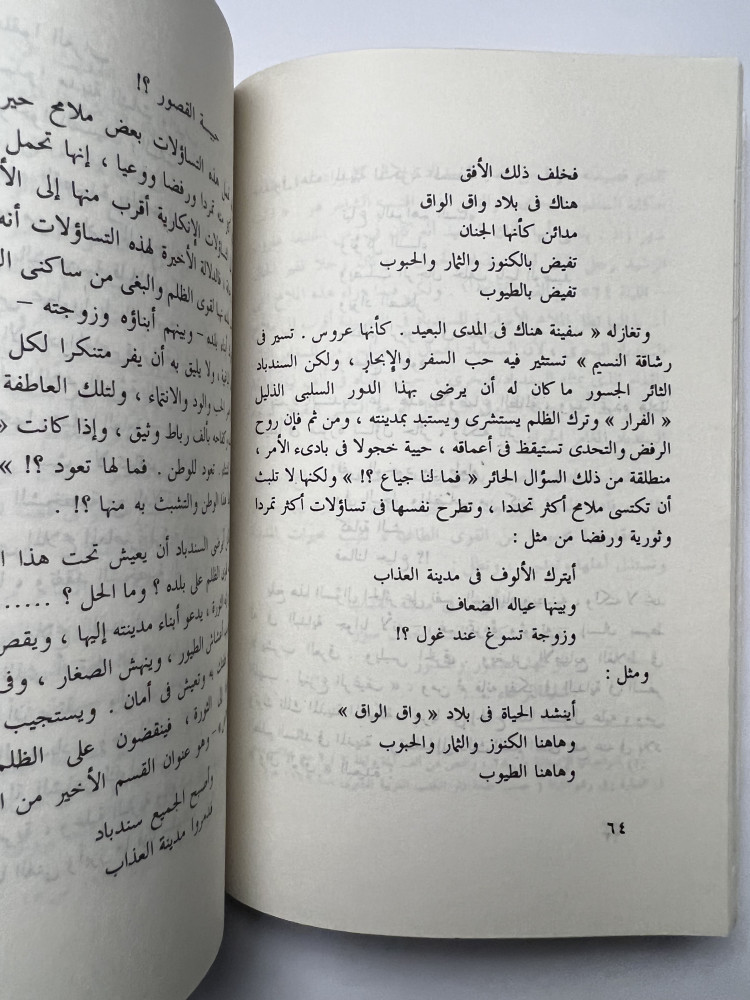 فخلف ذلك الأفق
هناك فى بلاد واق الواق
مدائن كأنها الجنان
تفيض بالكنوز والثمار والحبوب
تفيض بالطيوب
وتغازله « سفينة هناك فى المدى البعيد . كأنها عروس . تسير فى
رشاقة النسيم » تستثير فيه حب السفر والإبحار ، ولكن السندباد
الثائر الجسور ماكان له أن يرضى بهذا الدور السلبى الذليل
« الفرار » وترك الظلم يستشرى ويستبد بمدينته ، ومن ثم فإن روح
الرفض والتحدى تستيقظ فى أعماقه ، حيية خجولا فى بادىء الأمر ،
منطلقة من ذلك السؤال الحائر « فما لنا جياع ؟! » ولكنها لا تلبث
أن تكتسى ملامح أكثر تحددا ، وتطرح نفسها فى تساؤلات أكثر تمردا
وثورية ورفضا من مثل :
أيترك الألوف فى مدينة العذاب
وبينها عياله الضعاف
وزوجة تسوغ عند غول ؟!
ومثل :
أينشد الحياة فى بلاد « واق الواق »
وهاهنا الكنوز والثمار والحبوب
وهاهنا الطيوب
٦٤
حبية القصور ؟!
هذه التساؤلات بعض ملامح
تمردا ورفضا ووعيا ، إنها تحمل
التساؤلات الإنكارية أقرب منها إلى
فالدلالة الأخيرة لهذه التساؤلات أنه
لقوى الظلم والبغى من ساكنى
بلده – وبينهم أبناؤه وزوجته –
، ولا يليق به أن يفر متنكرا لكل
الحب والود والانتماء ، ولتلك العاطفة
كفاحه بألف رباط وثيق ، وإذا كانت «
تعود للوطن . فما لها تعود ؟! »
الوطن والتشبث به منها ؟! .
يرضى السندباد أن يعيش تحت هذا
الظلم على بلده ؟ وما الحل ؟ .....
، يدعو أبناء مدينته إليها ،
الطيور ، وينهش الصغار ، وفى
به وتعيش فى أمان . ويستجيب
إلى الثورة ، فينقضون على
– وهو عنوان القسم الأخير من
الجميع سندباد
مدينة العذاب